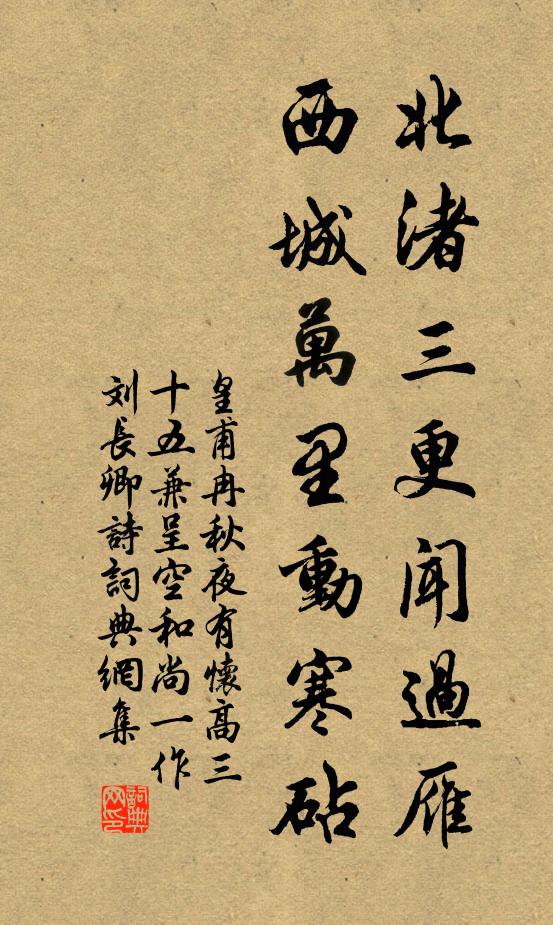 北渚三更聞過雁
西城萬里動寒砧
皇甫冉秋夜有懷高三
十五兼呈空和尚一作
刘長卿詩詞典網集
詞典
网印